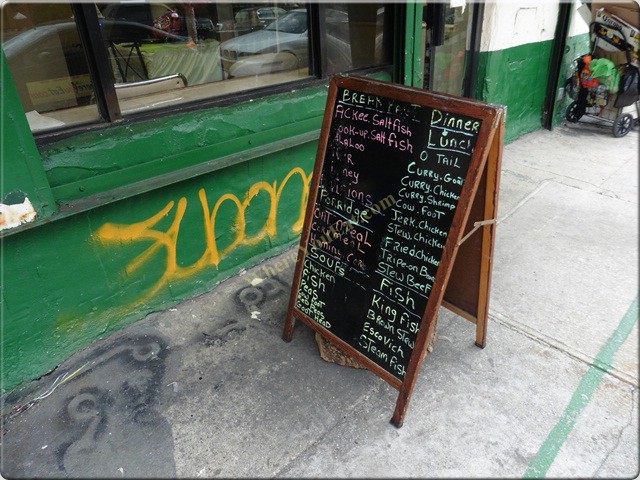 BREAKFAST
ACKEE. SALTFISH
COOK-UP. SALTFISH
Porridge
OAT MEAL
CORN MEAL
SOUPS
CHICKEN
FISH
PEAS
COW FOOT
RED PEAS
GOAT HEAD
Dinner
Lunch
O TAIL
CURRY. GOAT
CURRY. CHICKEN
CURRY. SHRIMP
COW. FOOT
JERK. CHICKEN
STEW. CHICKEN
FRIED CHICKEN
TRIPE-ON BEAN
STEW BEEF
FISH
KING FISH
BROWN STEW
ESCOVICH
STEAM FISH